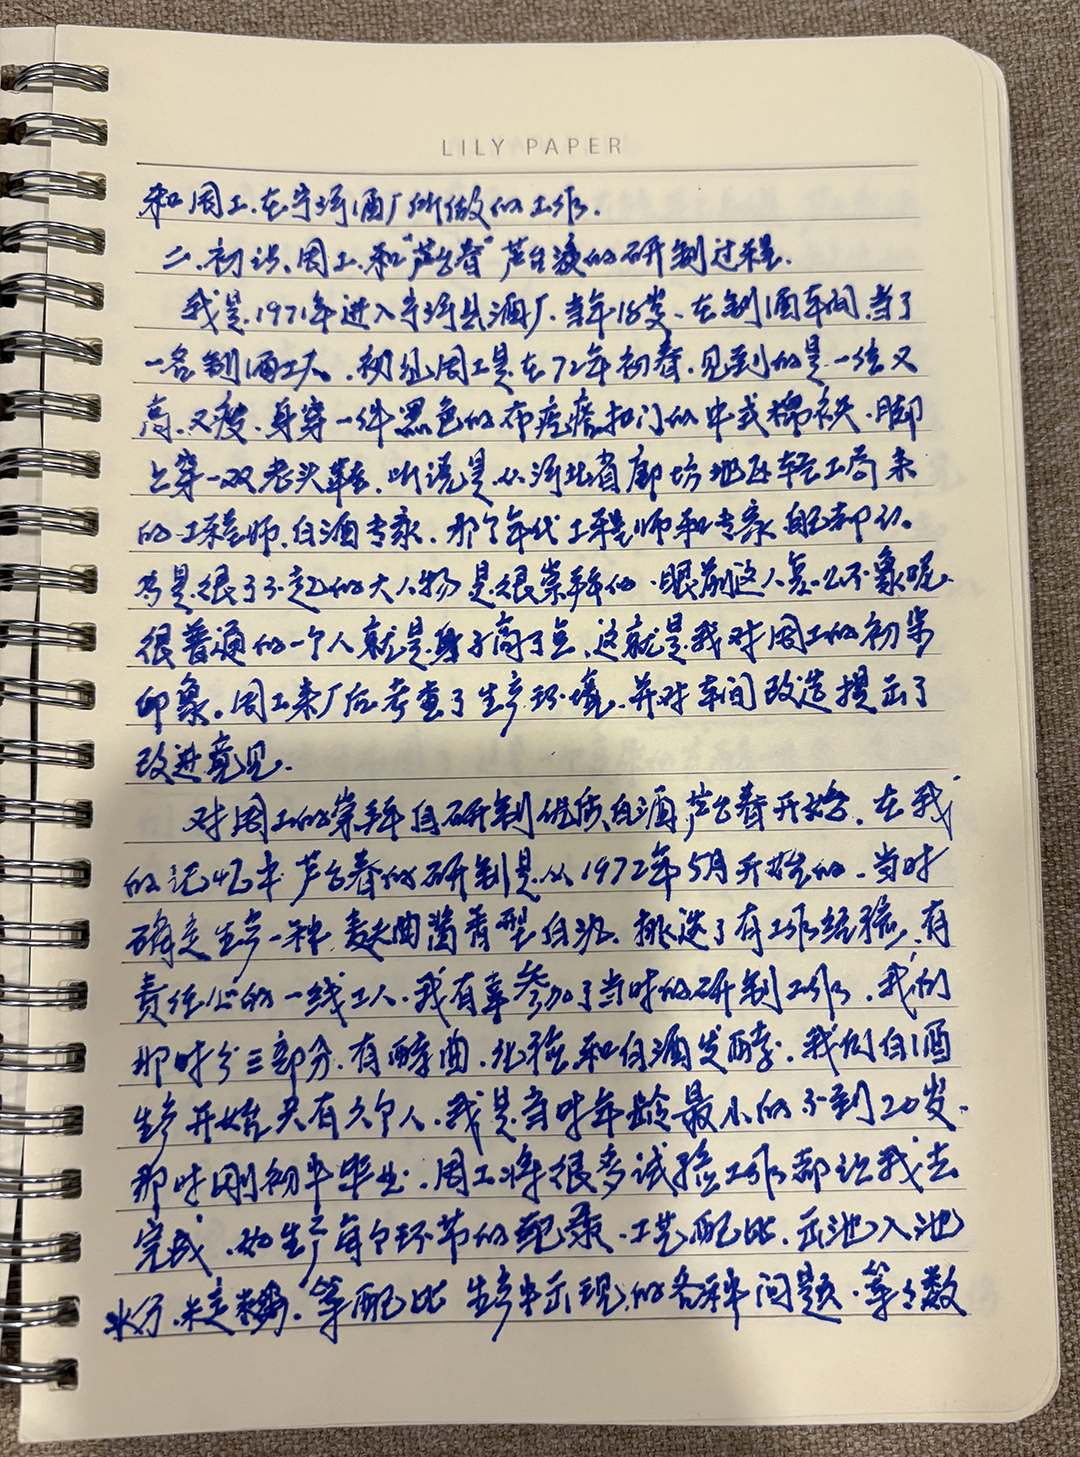 LILY PAPER
和周工在宁河酒厂所做的工作.
二.初识、周工.和"芦台春"芦台液的研制过程.
我是.1971年进入宁河县酒厂.当年18岁、在制酒车间.当了
一名制酒工人.初见周工是在72年初春.见到的是一位又
高.又瘦.身穿一件黑色的布疙瘩扣门的中式棉袄.脚
上穿一双老头鞋.听说是从河北省廊坊地区轻工局来
的工程师.白酒专家.那个年代工程师和专家 自己都认
为是很了不起的大人物是很崇拜的.眼前这人怎么不象呢.
很普通的一个人就是身子高了点.这就是我对周工的初步
印象。周工来厂后考查了生产环境.并对车间改造提出了
改进意见.
对周工的崇拜自研制优质白酒芦台春开始.在我
的记忆中芦台春的研制是从1972年5月开始的.当时
确定生产一种麸曲酱香型白酒.挑选了有工作经验.有
责任心的一线工人.我有幸参加了当时的研制工作.我们
那时分三部分.有酵曲.化验和白酒发酵.我们白酒
生产开始只有六个人.我是当时年龄最小的不到20岁.
那时刚初中毕业.周工将很多试验工作都让我去
完成.如生产每个环节的记录.工艺配比.出池入池
水分.淀粉.等配比 生产中出现的各种问题.等等数